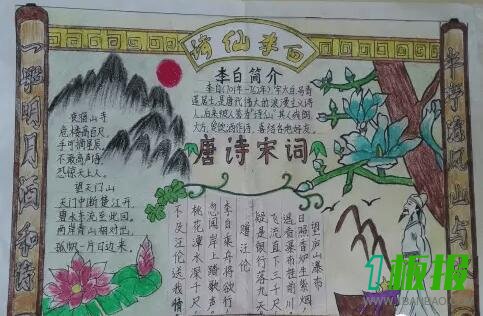 诗仙李白
明月酒和诗
清风山与
李白简介
李白(701年-762年),字太白,号青
莲居士,是唐代伟大的浪漫主义诗
人,后来被人誉为"诗仙",其人爽朗
大方,爱饮酒作诗,喜结交朋友。
唐诗宋词
夜宿山寺
危楼高百尺,
手可摘星辰。
不敢高声语,
恐惊天上人。
望天门山
天门中断楚江开,
碧水东流至此回。
两岸青山相对出,
孤帆一片日边来。
望庐山瀑布
日照香炉生紫烟,
遥看瀑布挂前川。
飞流直下三千尺,
疑是银河落九天
赠汪伦
李白乘舟将欲行,
忽闻岸上踏歌声。
桃花潭水深千尺,
不及汪伦送我情
1板报
1BANBAO.COM